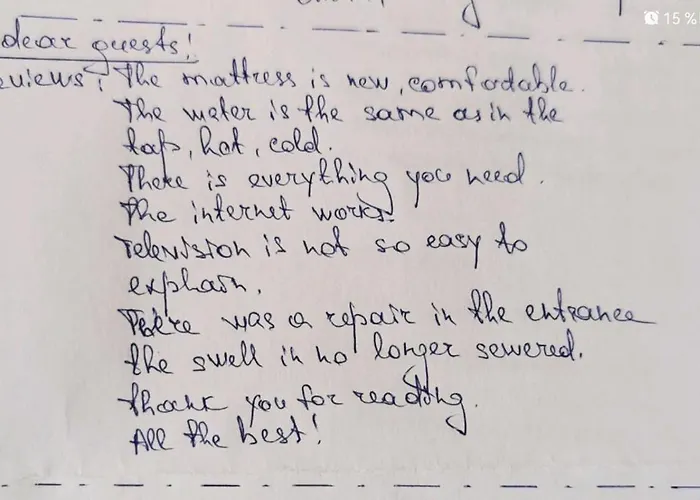 15 %
dear guests!
eviews: The mattress is new, comfordable.
The water is the same as in the
tap, hot, cold.
There is everything you need.
The internet works.
Television is not so easy to
explain.
There was a repair in the entrance
the swell in no longer sewered.
Thank you for reading.
All the best!